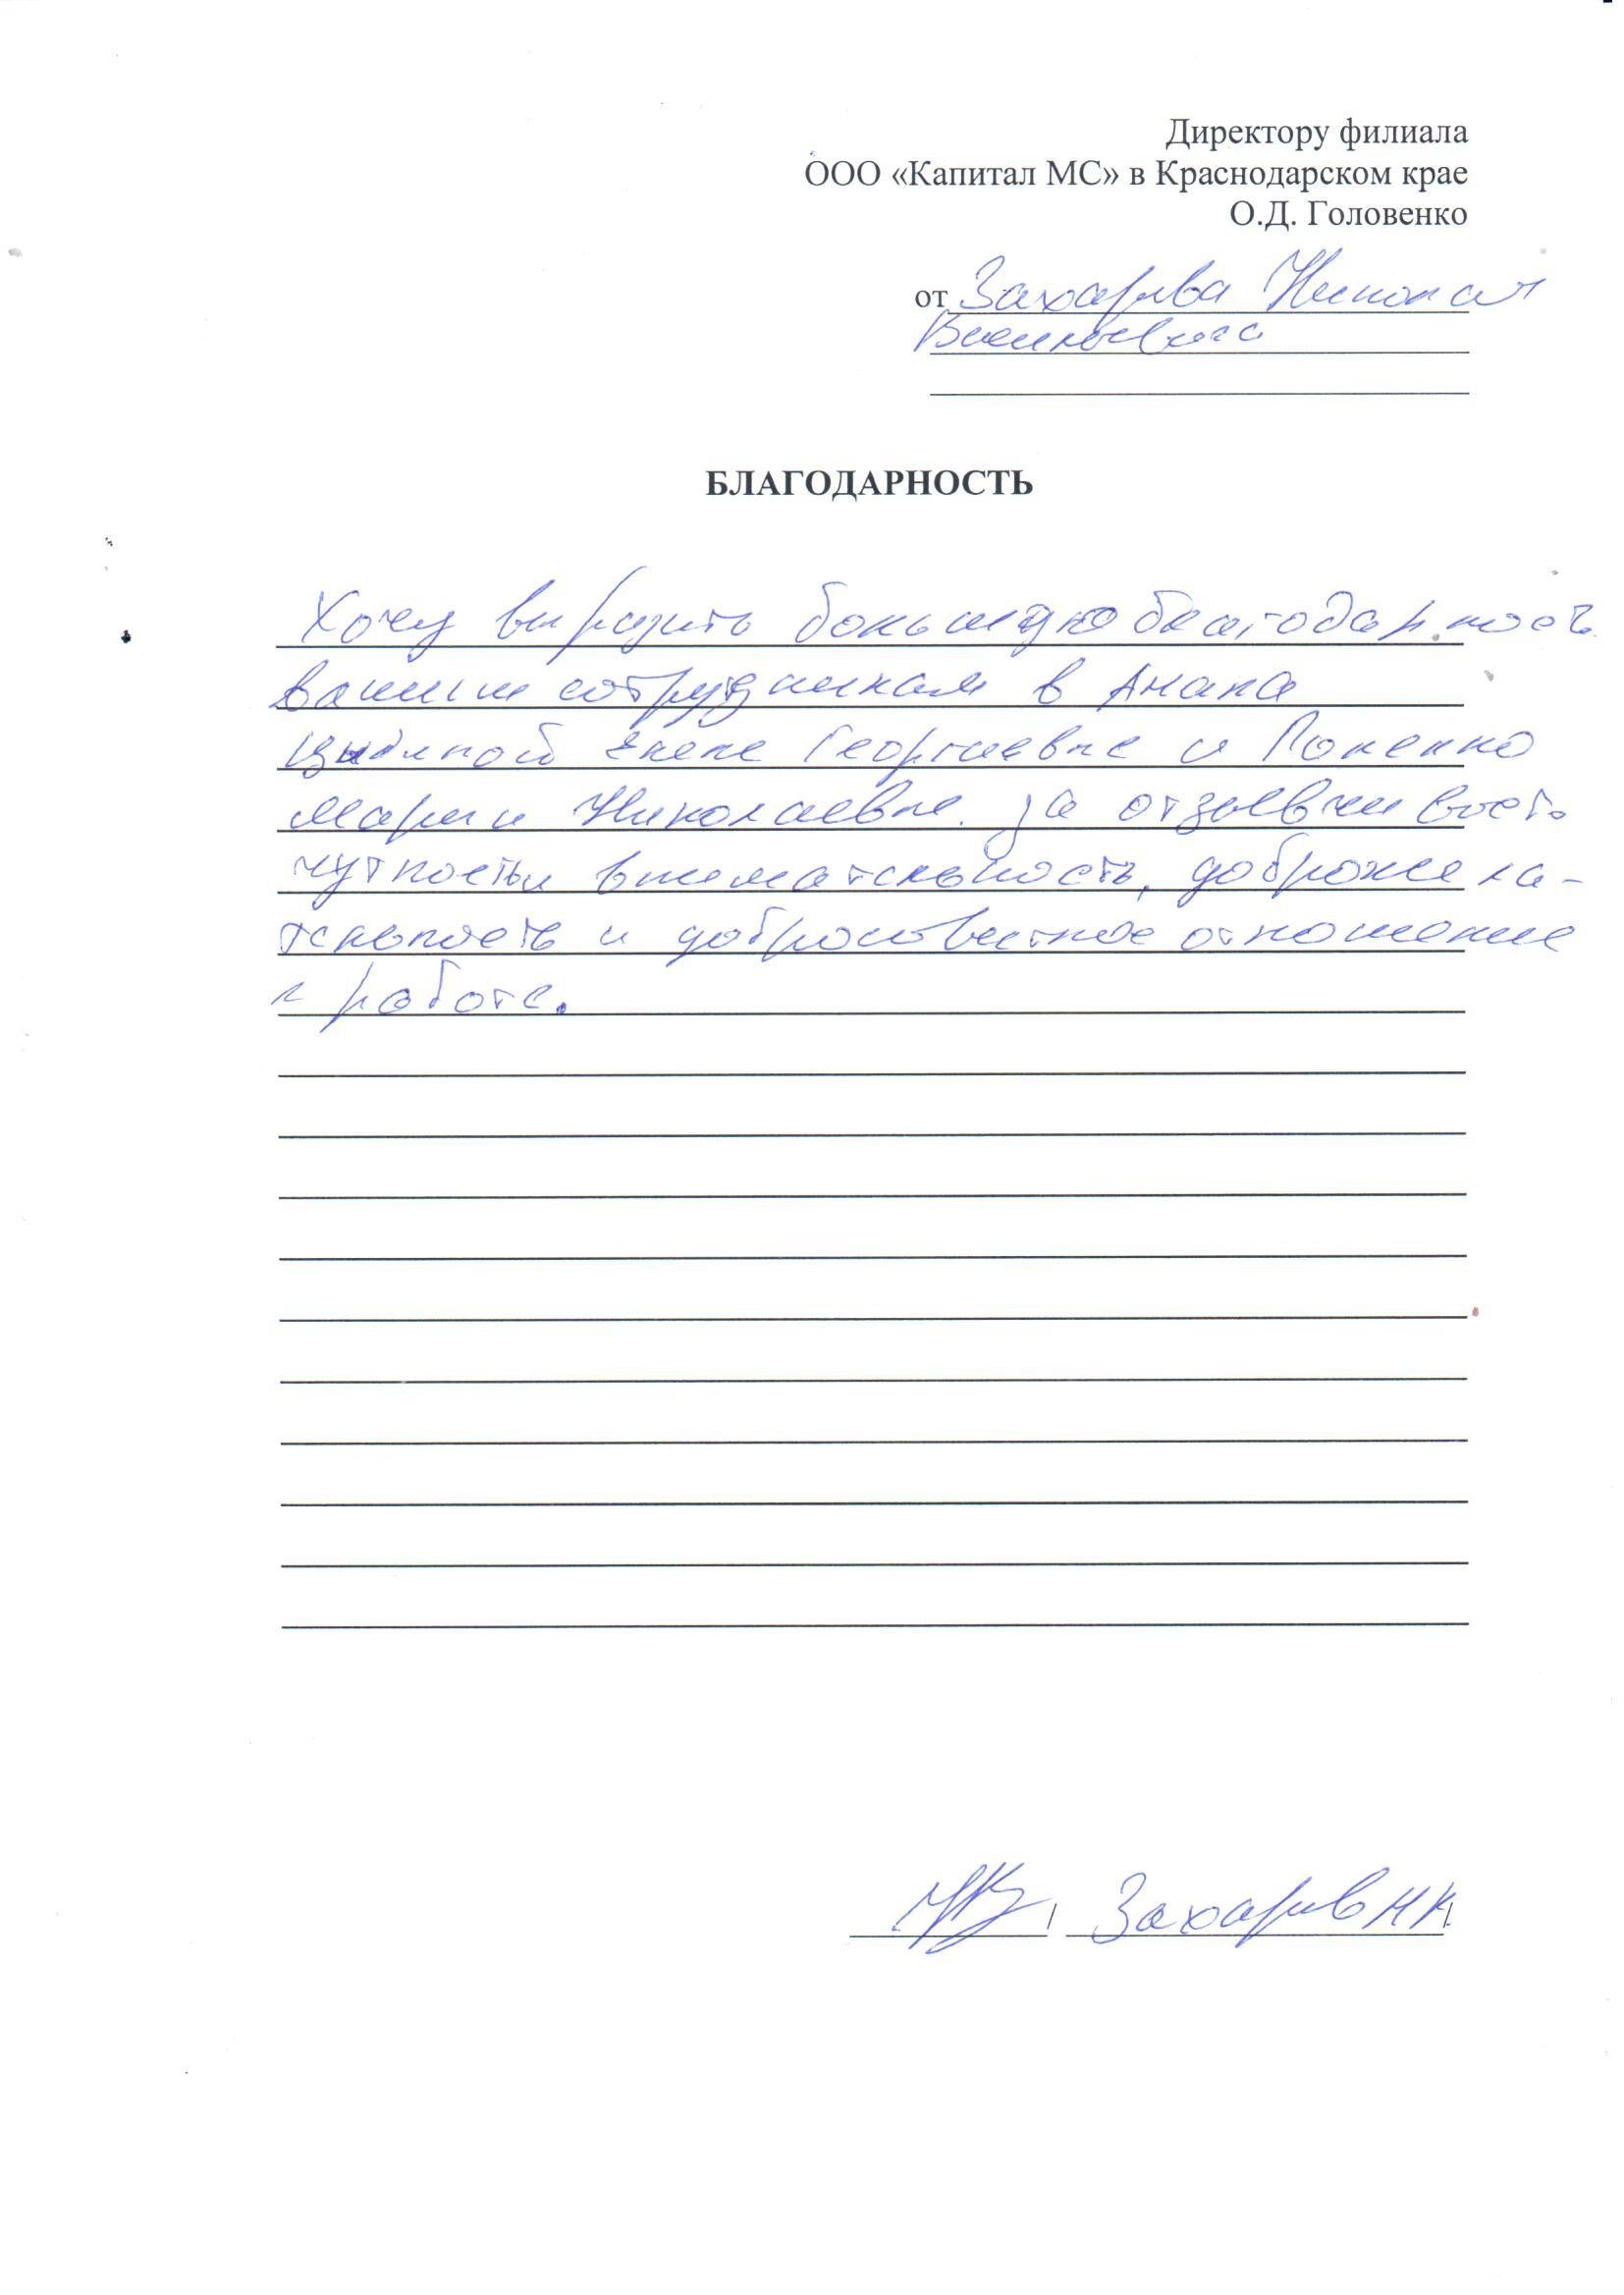 Директору филиала
ООО «Капитал МС» в Краснодарском крае
О.Д. Головенко
от Захарова Николая
БЛАГОДАРНОСТЬ
Хочу выразить большую благодарность
вашим сотрудникам в Анапа
Елене Георгиевне и
Марии Николаевне за отзывчивость
чуткость и внимательность, доброжела-
тельность и добросовестное отношение
к работе.
Захаров